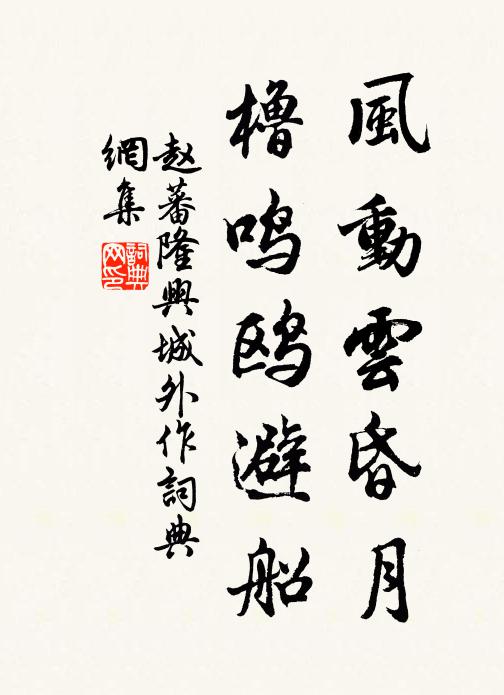 風動雲昏月
櫓鸣鸥避船
赵蕃隆興城外作詞典
網集
詞典
网印